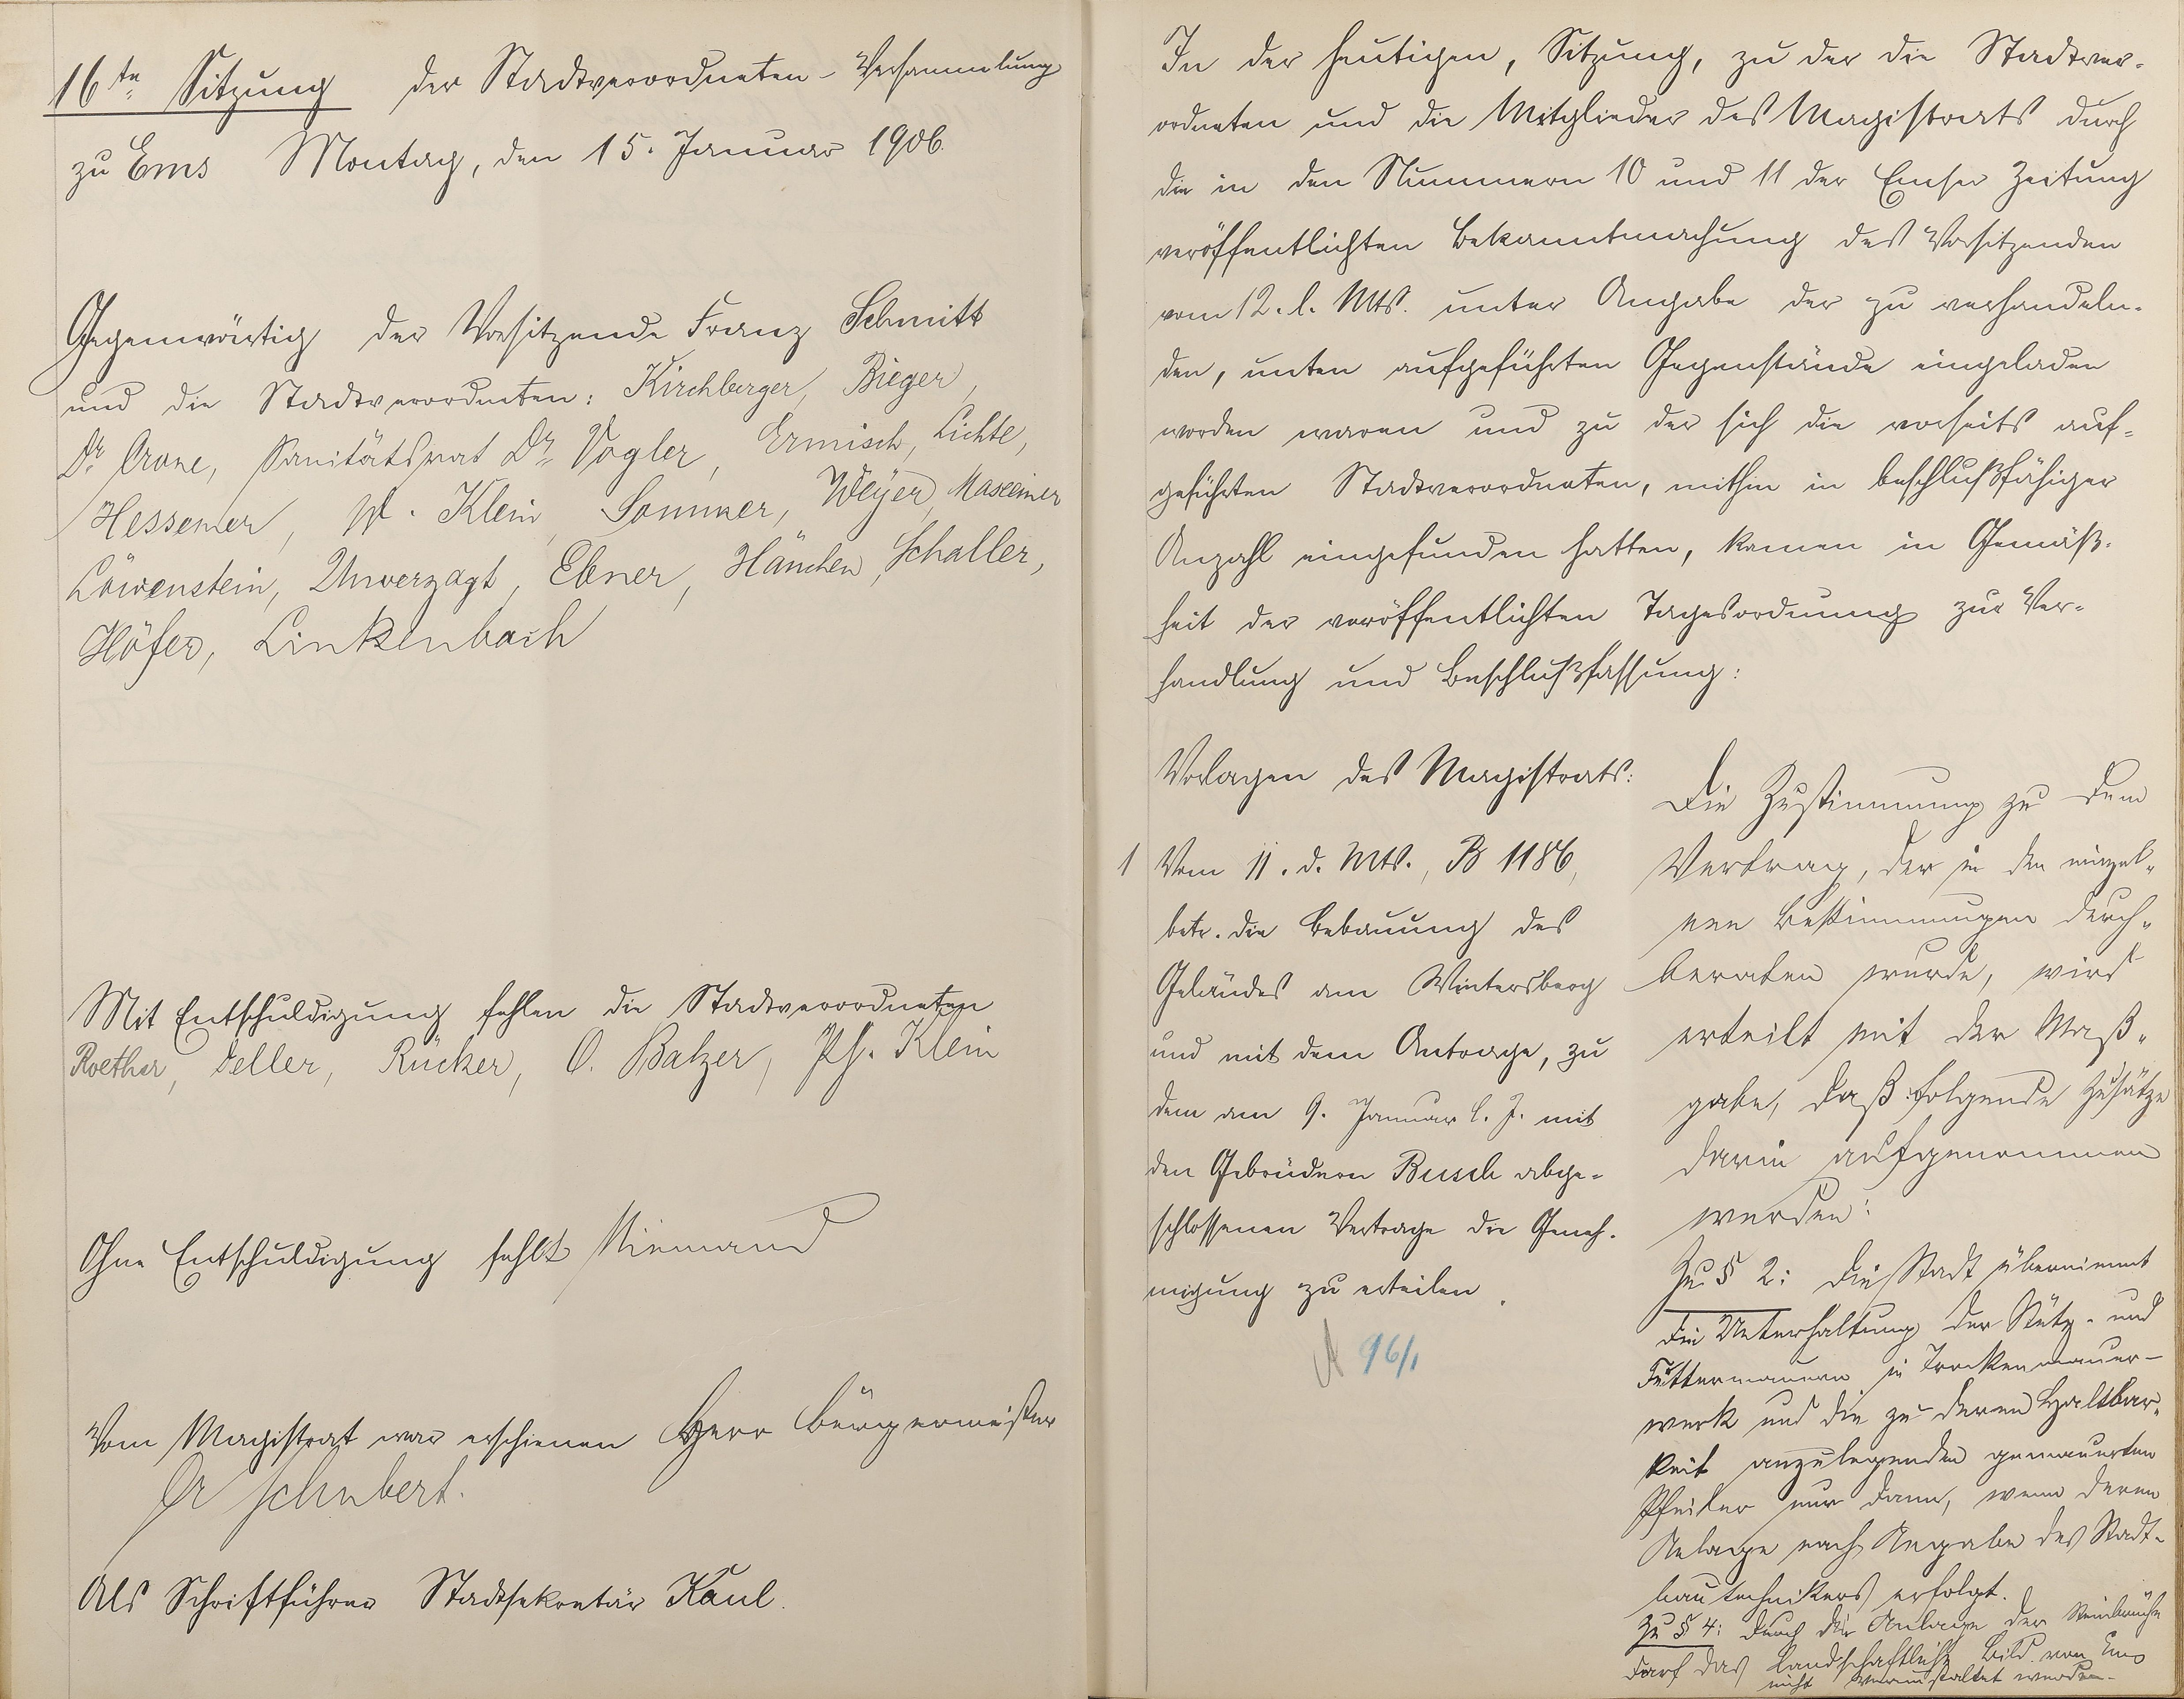 16te Sitzung der Stadtverordneten-Versammlung
zu Ems Montag, den 15. Januar 1906.
Gegenwärtig der Vorsitzende Franz Schmitt
und die Stadtverordneten: Kirchberger, Bieger,
Dr. Crone, Sanitätsrat Dr. Vogler, Ermisch, Lichte,
Hessemer, W. Klein, Sommer, Weyer,
Löwenstein, Unverzagt, Ebner, Hänchen, Schaller,
Höfer, Linkenbach
Mit Entschuldigung fehlen die Stadtverordneten
Roether, Deller, Rücker, O. Balzer, Ph. Klein
Ohne Entschuldigung fehlt Niemand
Vom Magistrat war erschienen Herr Bürgermeister
Dr Schubert.
Als Schriftführer Stadtsekretär Kaul.
In der heutigen, Sitzung, zu der die Stadtver-
ordneten und die Mitglieder des Magistrats durch
die in den Nummern 10 und 11 der Emser Zeitung
veröffentlichten Bekanntmachung des Vorsitzenden
vom 12. l. Mts. unter Angabe der zu verhandeln-
den, unten aufgeführten Gegenstände eingeladen
worden waren und zu der sich die vorseits auf-
geführten Stadtverordneten, mithin in beschlußfähiger
Anzahl eingefunden hatten, kamen in Gemäß-
heit der veröffentlichten Tagesordnung zur Ver-
handlung und Beschlußfassung:
Vorlagen des Magistrats:
1 Vom 11. d. Mts., B 1186,
betr. die Bebauung des
Geländes am Wintersberg
und mit dem Antrage, zu
dem am 9. Januar l. J. mit
den Gebrüdern Busch abge-
schlossenen Vertrage die Geneh-
migung zu erteilen.
A 96/1
Die Zustimmung zu dem
Vertrag, der in den einzel-
nen Bestimmungen durch-
beraten wurde, wird
erteilt mit der Maß-
gabe, daß folgende Zusätze
darin aufgenommen
werden:
Zu § 2: Die Stadt übernimmt
die Unterhaltung der Stütz- und
Futtermauern in Trockenmauer-
werk und die zu deren Haltbar-
keit anzulegenden gemauerten
Pfeiler nur dann, wenn deren
Anlage nach Angabe des Stadt-
bautechnikers erfolgt.
Zu § 4: Durch die Anlage der Steinbrüche
darf das landschaftliche Bild von Ems
nicht verunstaltet werden.